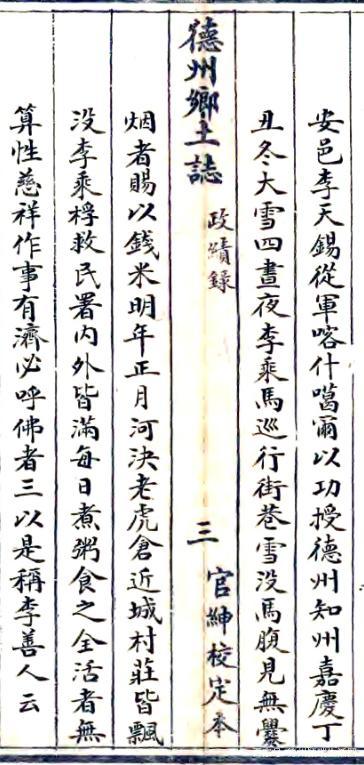 安邑李天錫從軍喀什噶爾以功授德州知州嘉慶丁
丑冬大雪四晝夜李乘馬巡行街巷雪没馬腹見無爨
德州鄉土誌 政績錄 三 官紳校定本
烟者賜以錢米明年正月河决老虎倉近城村莊皆飄
没李乘桴救民署内外皆滿每日煮粥食之全活者無
算性慈祥作事有濟必呼佛者三以是稱李善人云